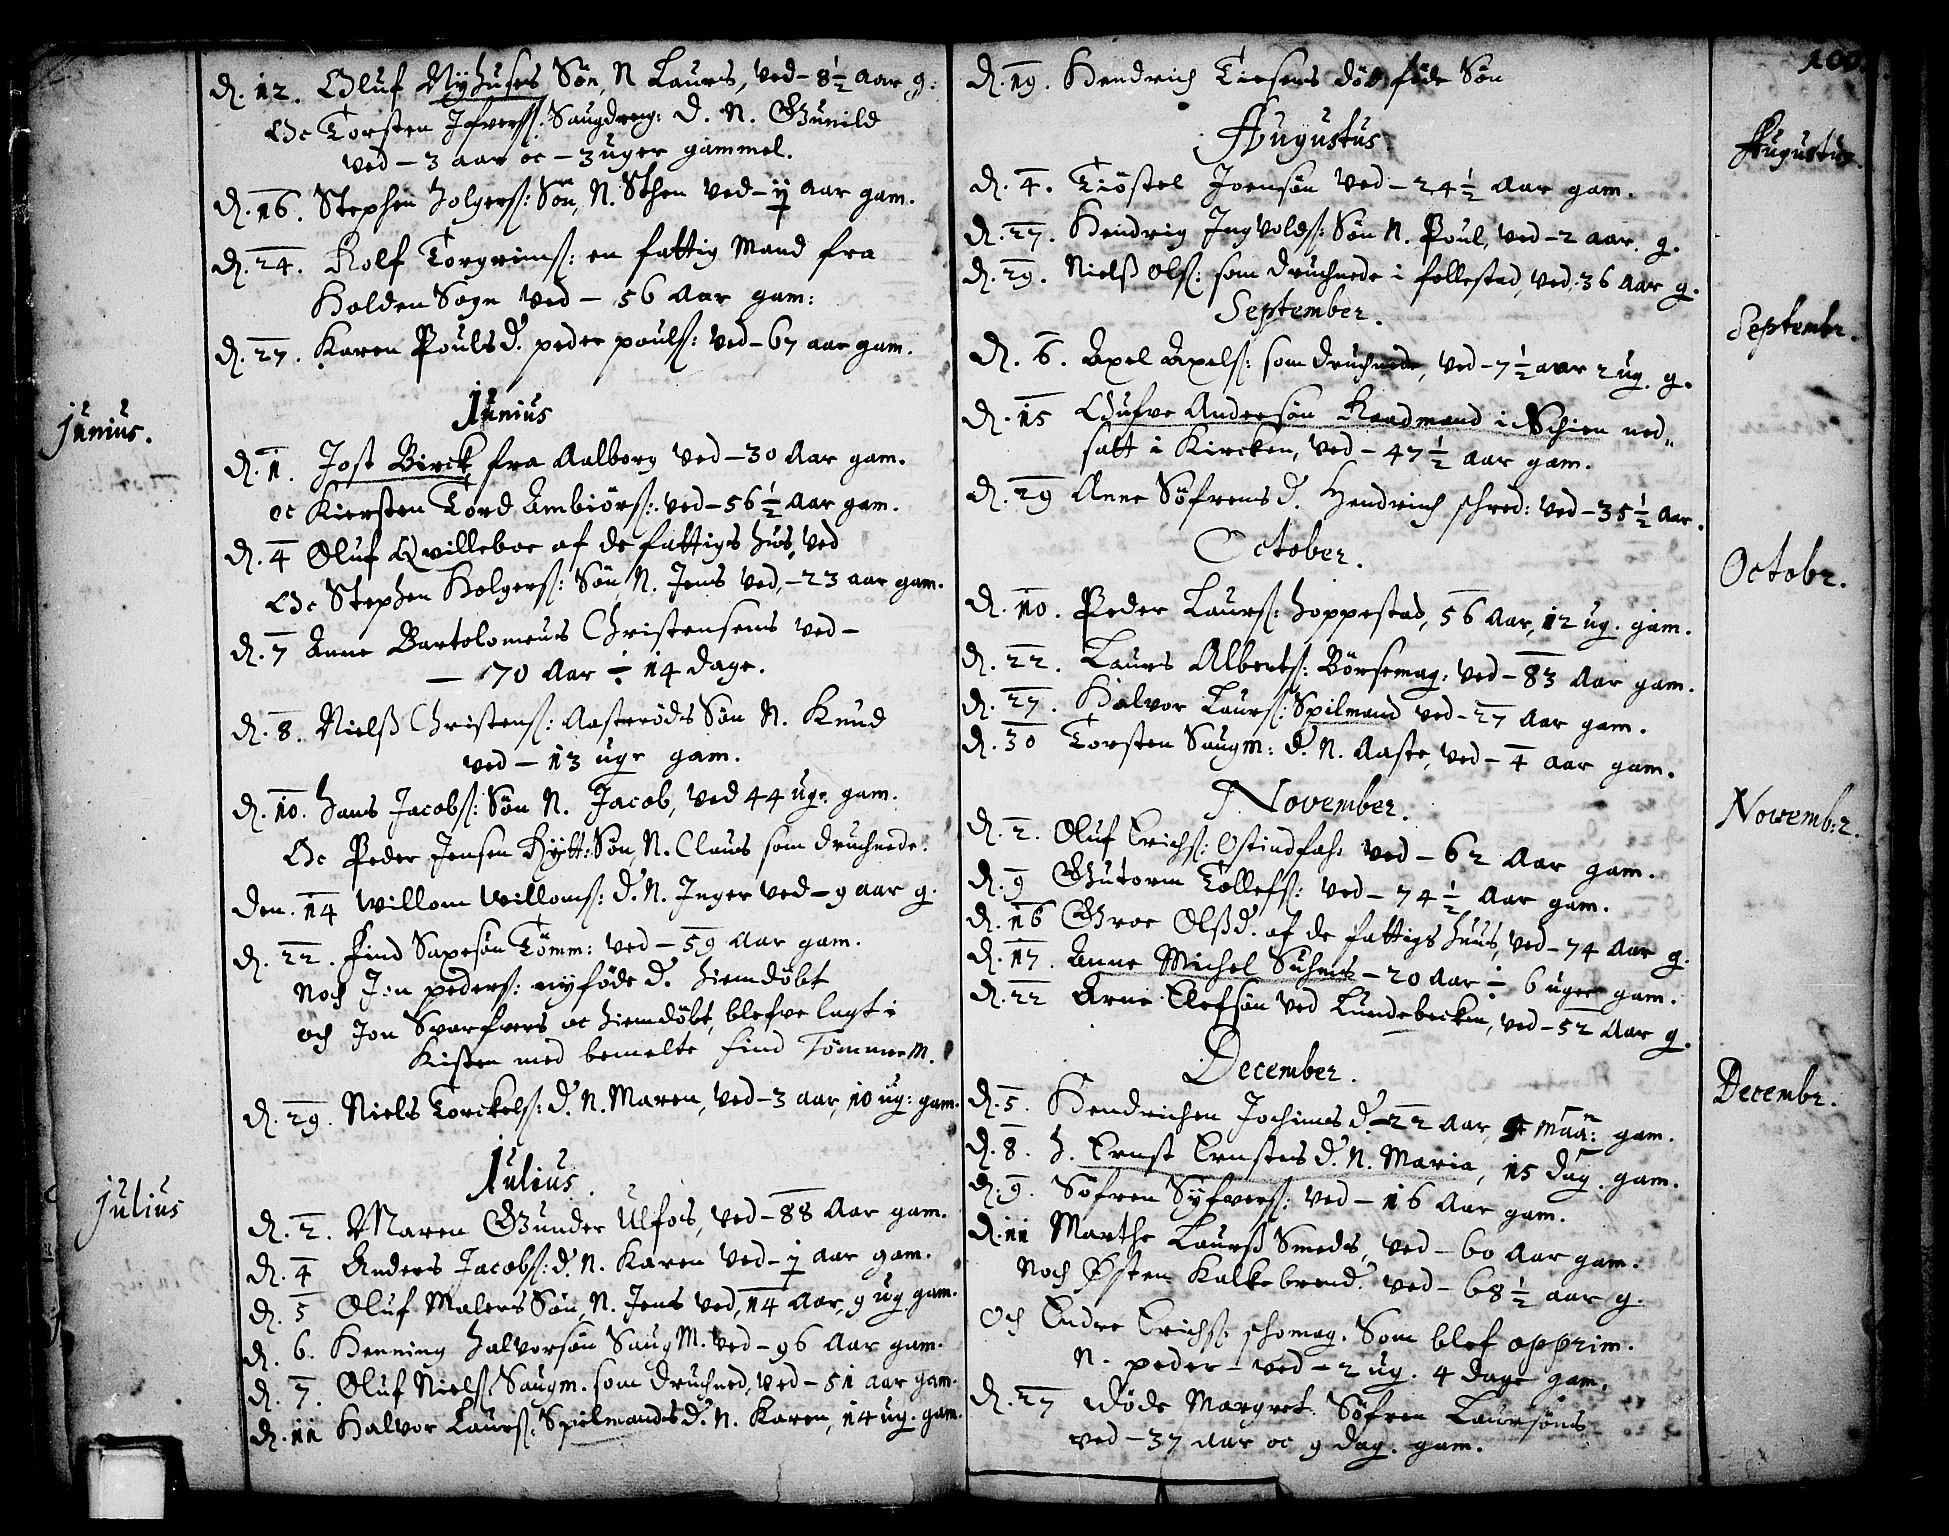 d. 12. Oluf Nyhuses Søn, N Laurs, ved – 8½ aar g:
Oc Torsten Ifvers: Saugdreng: D. N. Gunild
ved – 3 aar oc – 3 uger gammel.
d. 16. Stephen Holgers: Søn, N. Sthen ved – aar gam.
d. 24. Rolf Torgrims: en fattig Mand fra
Holden Sogn ved – 56 Aar gam:
d. 27. Karen Pouls d. peder pouls: ved – 67 aar gam.
Junius
Junius.
d. 11. Jost Birck fra Aalborg ved – 30 Aar gam.
oc Kiersten Tord Ambiørs: ved – 56½ Aar gam.
d. 4 Oluf Qvilleboe af de fattigs huus, ved
Oc Stephen Holgers: Søn, N. Jens ved, – 23 aar gam.
d. 7 Anne Bartolomeus Christensens ved –
– 70 Aar ÷ 14 dage.
d. 8. Nielß Christens: Aasterøds Søn N. Knud
ved – 13 uge gam.
d. 10. Hans Jacobs: Søn N. Jacob, ved 44 uge gam.
Oc Peder Jensen Rytt: Søn, N. Claus som druchnede.
Den. 14 Willom Willoms: D. N. Inger ved – 9 aar g.
d. 22. Find Saxesøn Tømm: ved – 59 Aar gam.
Noch Jon peders: nyføde d. hiemdøbt
och Jon Svarfvers oc hiemdøbt, blefve lagt i
Kisten med bemelte Find Tømmerm.
d. 29. Niels Torckels: d. N. Maren, ved – 3 aar, 10 ug: gam.
Julius.
Julius
d. 2. Maren Gunder Ulfos, ved – 88 Aar gam.
d. 4 Anders Jacobs: d. N. Karen ved – aar gam.
d. 5 Oluf Malers Søn, N. Jens ved, 14 Aar, 9 ug gam.
d. 6. Henning Halvorsøn Saugm. ved – 96 Aar gam.
d. 7. Oluf Niels: Saugm. som druchned, ved – 51 aar gam.
d. 11 Halvor Laurs: Spielmands d. N. Karen, 14 ug. gam.
100.
d. 19. Hendrich Tiesens død føde Søn
Augustus.
Augustus.
d. 4. Tiøstel Joensøn ved – 24½ Aar gam.
d. 27. Hendrig Ingvolds: Søn N. Poul, ved – 2 aar. g.
d. 29. Nielß Ols: som druchnede i follestad, ved. 36 Aar g.
September.
Septembr.
d. 6. Axel Axels: som druchnede, ved – 7½ aar 2 ug. g.
d. 15 Gufve Andersøn Raadmand i Schien ned=
satt i Kircken, ved – 47½ aar gam.
d. 29 Anne Søfrens d. Hendrich schred: ved – 35½ Aar.
October.
Octobr.
d. 10. Peder Laurs: hoppestad, 56 Aar, 12 ug. gam.
d. 22. Laurs Alberts: Børsemag: ved – 83 Aar gam.
d. 27. Halvor Laurs: Spilmand ved – 27 Aar gam.
d. 30 Torsten Saugm: d. N. Aaste, ved – 4 aar gam.
November.
Novemb:2.
d. 2. Oluf Erichs: Ostindfah: ved – 62 Aar gam.
d. 9 Gutorm Tollefs: ved – 74½ Aar gam.
d. 16 Groe Olßd. af de fattigs huus, ved – 74 Aar g.
d. 17. Anne Michel Suhms – 20 Aar ÷ 6 uger gam.
d. 22 Arne Elefsøn ved Lundebecken, ved – 52 Aar g.
December.
Decembr.
d. 5. Hendrichen Jochims d. – 22 Aar, maa: gam.
d. 8. H. Ernst Ernstens d. N. Maria, 15 dag. gam.
d. 9. Søfren Syfvers: ved – 16 Aar gam.
d. 11 Marthe Laurß Smeds, ved – 60 Aar gam.
Noch Østen Kalkebrend ved – 68½ aar g.
Och Endre Erichs: schomag: Som blef opprim.
N. peder – ved – 2 ug. 4 dage gam.
d. 27 døde Margret Søfren Laursøns
ved – 37 aar oc 9 dag. gam.